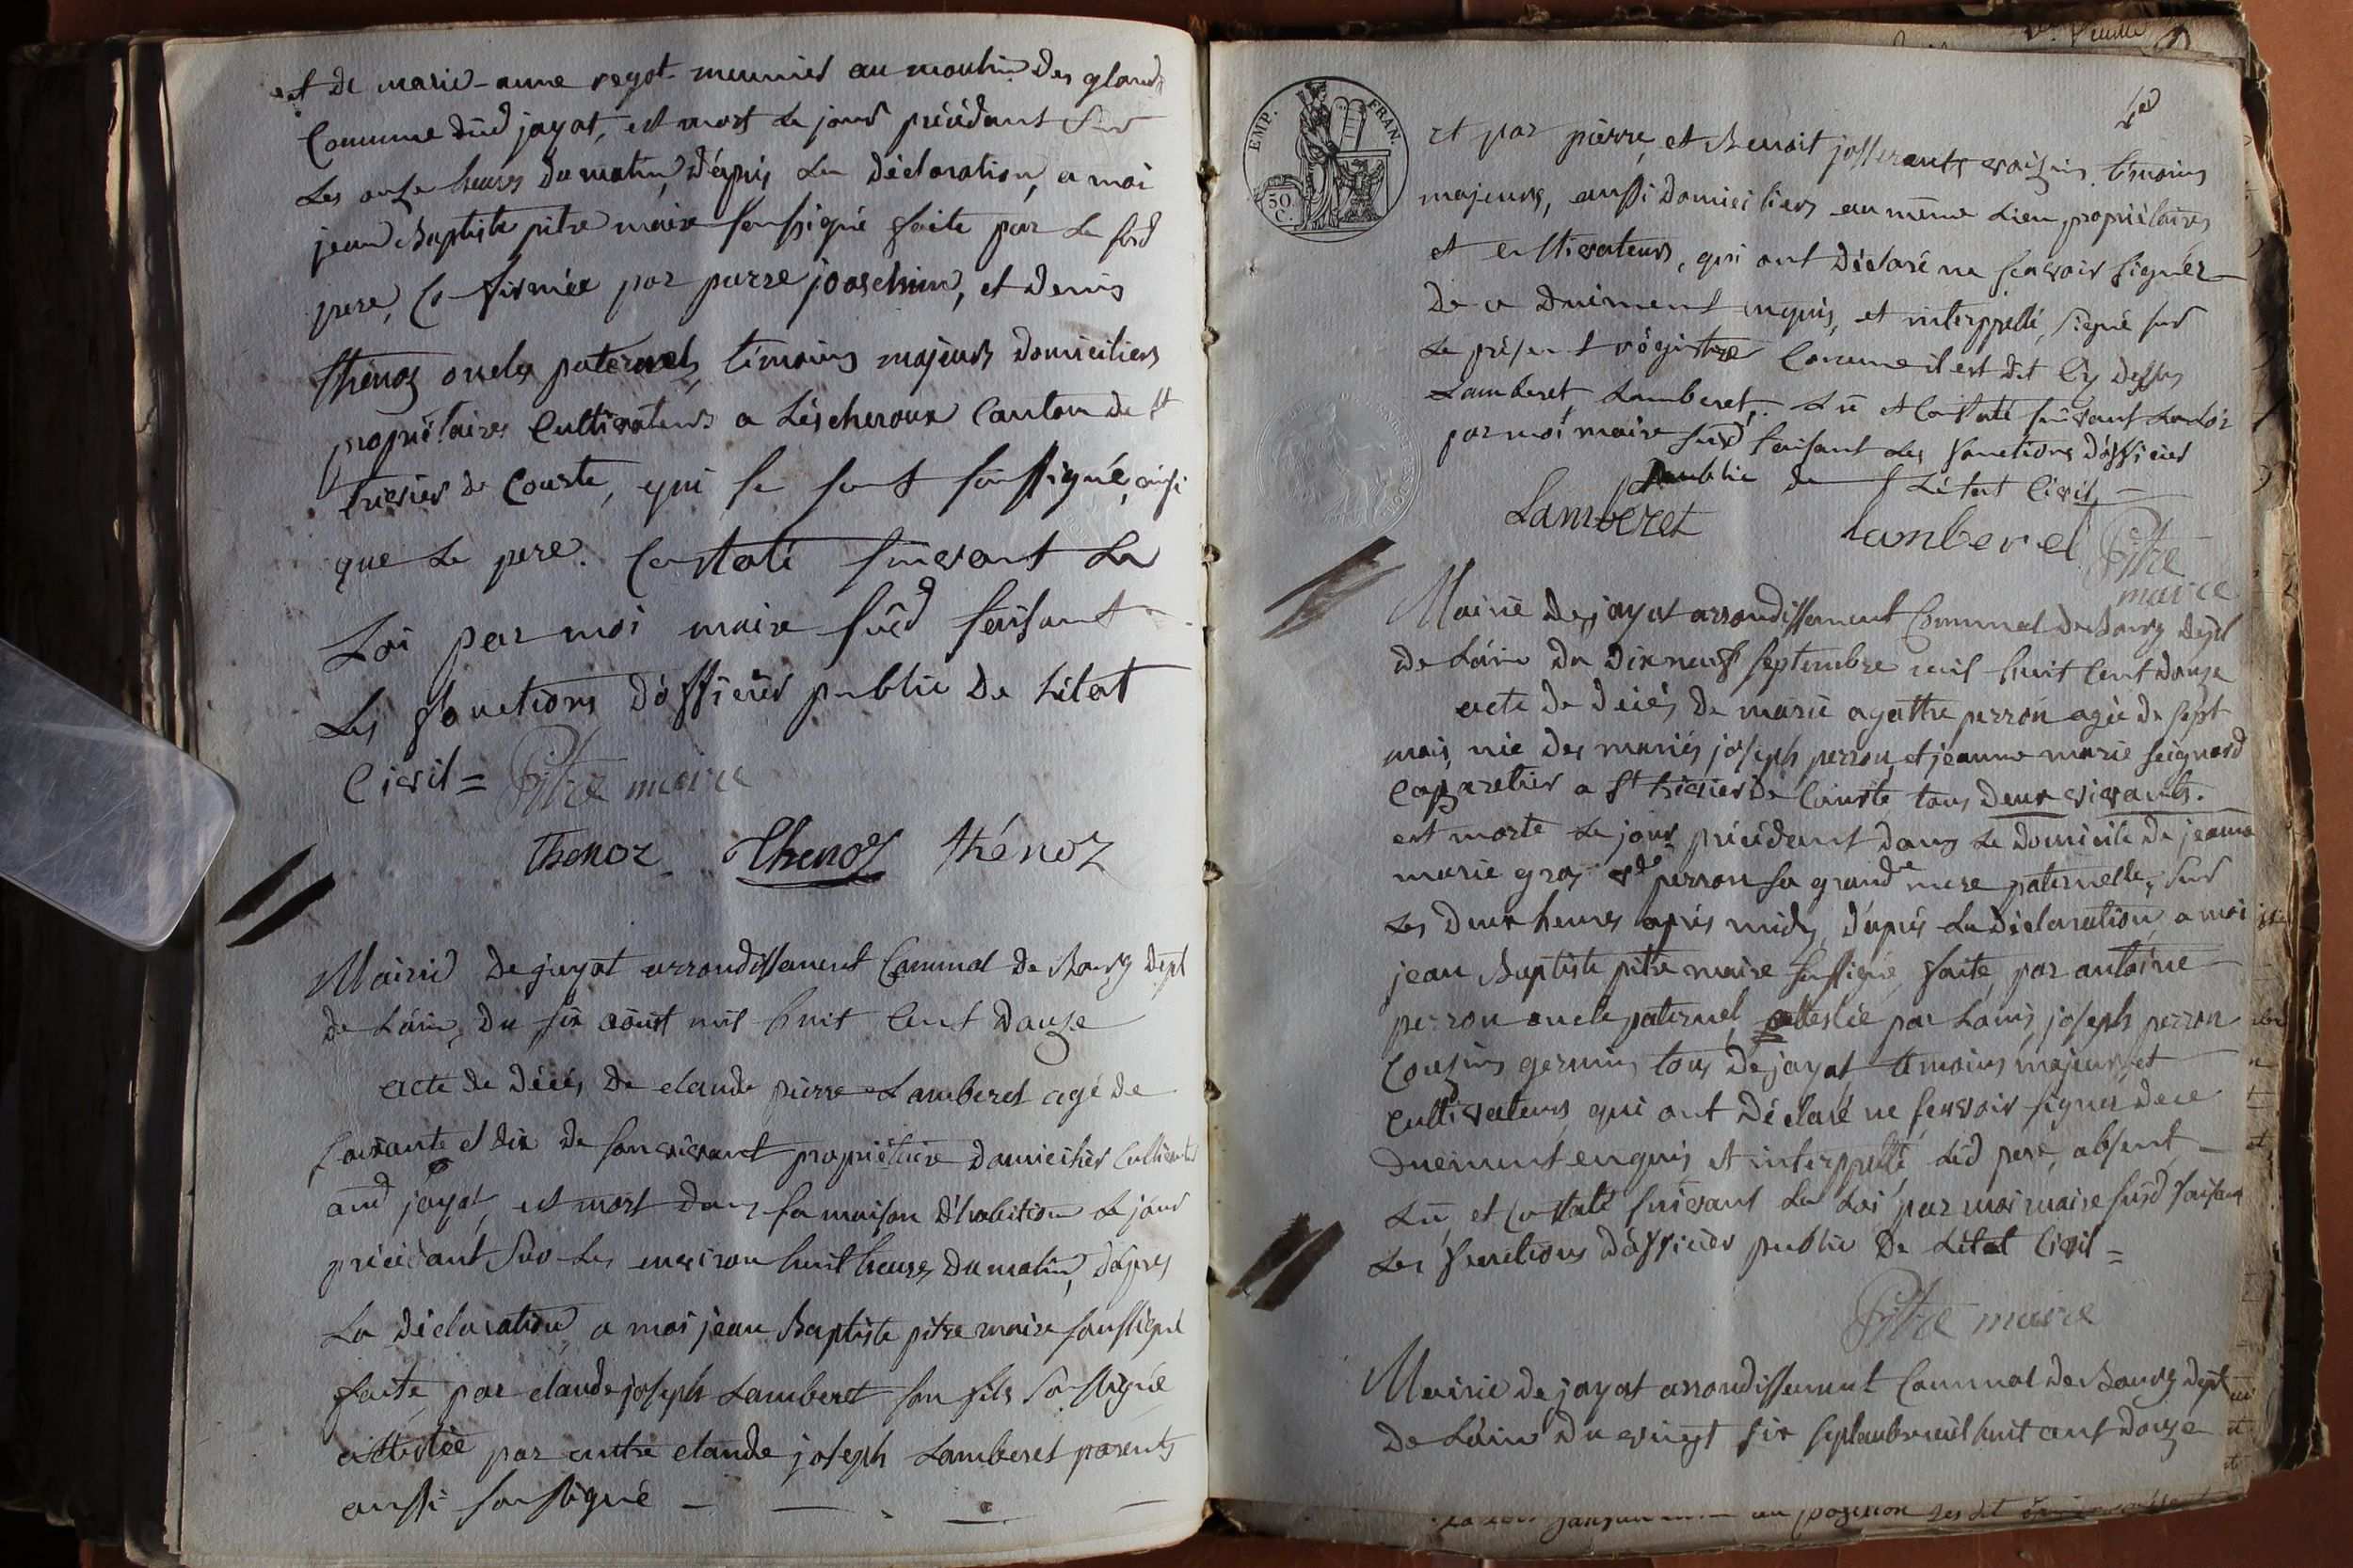 et de marie-anne regot meunier au moulin des gland
Commune dud jayat, est mort le jour précédant sur
les onze heures du matin, d'après la déclaration, a moi
jean Baptiste pitre maire soussigné faite par le susd
pere, Confirmée par pierre joaschim, et denis
thénoz oncles paternels, témoins majeurs domiciliers
propriétaires Cultivateurs a Léscheroux Canton de st
trivier de Courte, qui se sont soussigné, ainsi
que le pere. Constaté suivant la
Loi par moi maire susd faisant
Les fonctions d'officier public de l'état
Civil = Pitre maire
thenoz Thenoz thénoz
Mairie de jayat arrondissement Communal de Bourg dept
de L'ain, du six aoust mil huit Cent douze
acte de décès de claude pierre Lamberet agé de
soixante et dix de son vivant propriétaire domicilier Cultivateur
aud jayat, est mort dans sa maison d'habition le jour
précédant sur les environ huit heures du matin, d'apres
La déclaration a moi jean Baptiste pitre maire soussigné
faite par claude joseph Lamberet son fils soussigné
attestée par autre claude joseph Lamberet parents
aussi soussigné
et par pierre, et Benoit josserants voisins témoins
majeurs, aussi domiciliers au même Lieu, propriétaires
et cultivateurs, qui ont déclaré ne scavoir signer
de ce duement enquis, et interppellé, signé sur
Le présent régistre Comme il est dit Cy dessus
Lamberet, Lamberet, Lû et Constaté suivant La Loi
par moi maire susd faisant les fonctions d'officier
public de L'état Civil
Lamberet lamberet Pitre
maire
Mairie de jayat arrondissement Communal de Bourg dept
de L'ain du dix neuf septembre mil huit Cent douze
acte de décès de marie agathe perron agée de sept
mois, née des mariés joseph perron, et jeanne marie seignard
a st trivier de Courte tous deux vivants.
est morte le jour précédent dans le domicile de jeanne
marie gros vde perron sa grande mere paternelle, sur
Les deux heures après midy, d'après La déclaration, a moi
jean Baptiste pitre maire soussigné faite, par antoine
perron oncle paternel, attestée par Louis joseph perron
Cousins germins tous de jayat témoins majeurs, et
Cultivateurs, qui ont déclaré ne scavoir signer, de ce
duement enquis et interppellé, Led pere, absent
Lû, et Constaté suivant La Loi par moi maire susd faisant
Les fonctions d'officier public de L'état Civil =
Pitre maire
Mairie de jayat arrondissement Communal de Bourg dept
de L'ain du vingt six septembre mil huit cent douze
EMP. FRAN.
50
C.